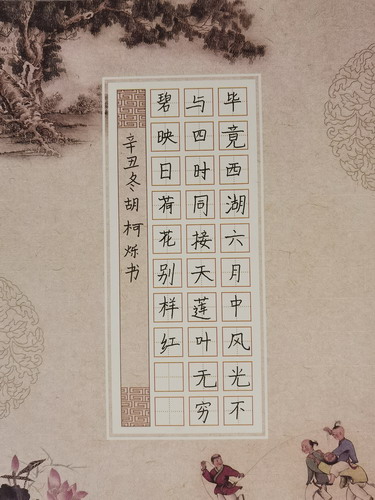 毕竟西湖六月中风光不
与四时同接天莲叶无穷
碧映日荷花别样红
辛丑冬胡柯烁书